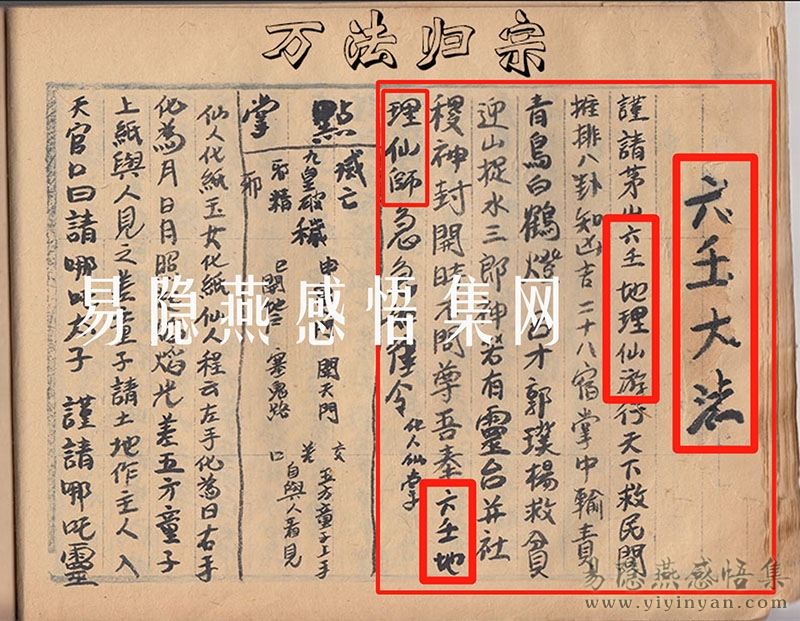 万法归宗
六壬大法
謹請茅山六壬地理仙游行天下救民間
推排八卦知凶吉二十八宿掌中輪責
青鳥白鶴燈 才郭璞楊救貧
迎山捉水三郎神若有靈台并社
稷神封開時不問尊吾奉六壬地
理仙師急急 律令 化人仙掌
點掌
滅亡
九皇破穢
邪精
邪
申 閉天門
己開 塞鬼路
五方童子上手
自與人看見
口
仙人化紙玉女化紙仙人程云左手化為日右手
化為月日月照 焰光差五方童子
上紙與人見之差童子請土地作主人入
天官口曰請哪吒太子 謹請哪吒靈
易隐燕感悟集网
易隐燕感悟集
www.yiyinyan.com